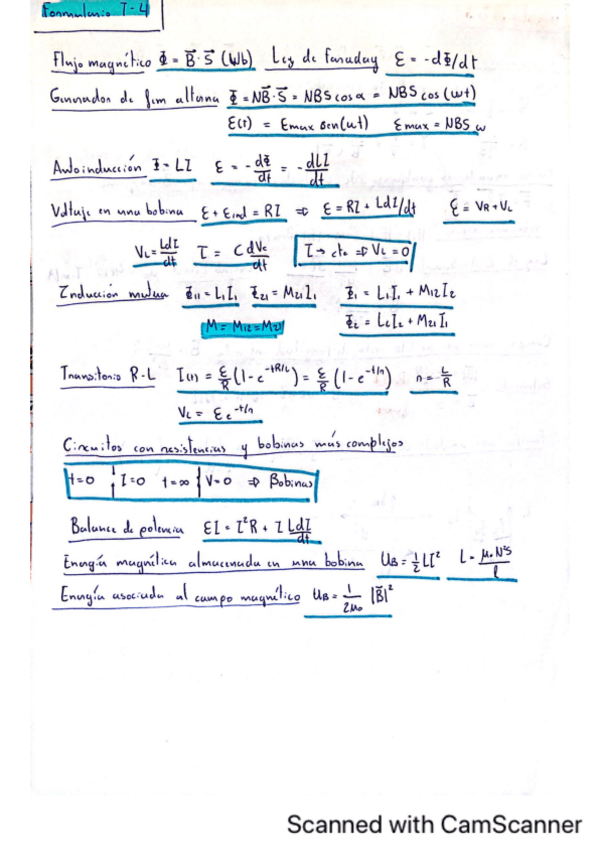 Formulario T-4
Flujo magnético Φ = B⃗·S⃗ (Wb) Ley de faraday ε = -dΦ/dt
Generador de fem alterna Φ = NB⃗·S⃗ = NBS cos α = NBS cos (ωt)
ε(t) = Emax sen(ωt) Emax = NBS ω
Autoinducción Φ = LI ε = -dΦ/dt = -dLI/dt
Voltaje en una bobina ε + εind = RI ⇒ ε = RI + LdI/dt ε = VR + VL
VL = LdI/dt I = C dVc/dt I → cte ⇒ VL = 0
Inducción mutua Φ11 = L1I1 Φ21 = M21I1 Φ1 = L1I1 + M12I2
M = M12 = M21 Φ2 = L2I2 + M21I1
Transitorio R-L I(t) = ε/R (1 - e^-tR/L) = ε/R (1 - e^-t/n) n = L/R
VL = εe^-t/n
Circuitos con resistencias y bobinas más complejos
t=0 { I=0 t=∞ { V=0 ⇒ Bobinas
Balance de potencia εI = I²R + I LdI/dt
Energía magnética almacenada en una bobina UB = 1/2 LI² L = μ₀N²S/l
Energía asociada al campo magnético UB = 1/2μ₀ |B⃗|²
Scanned with CamScanner